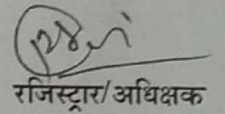 रजिस्ट्रार/अधिक्षक